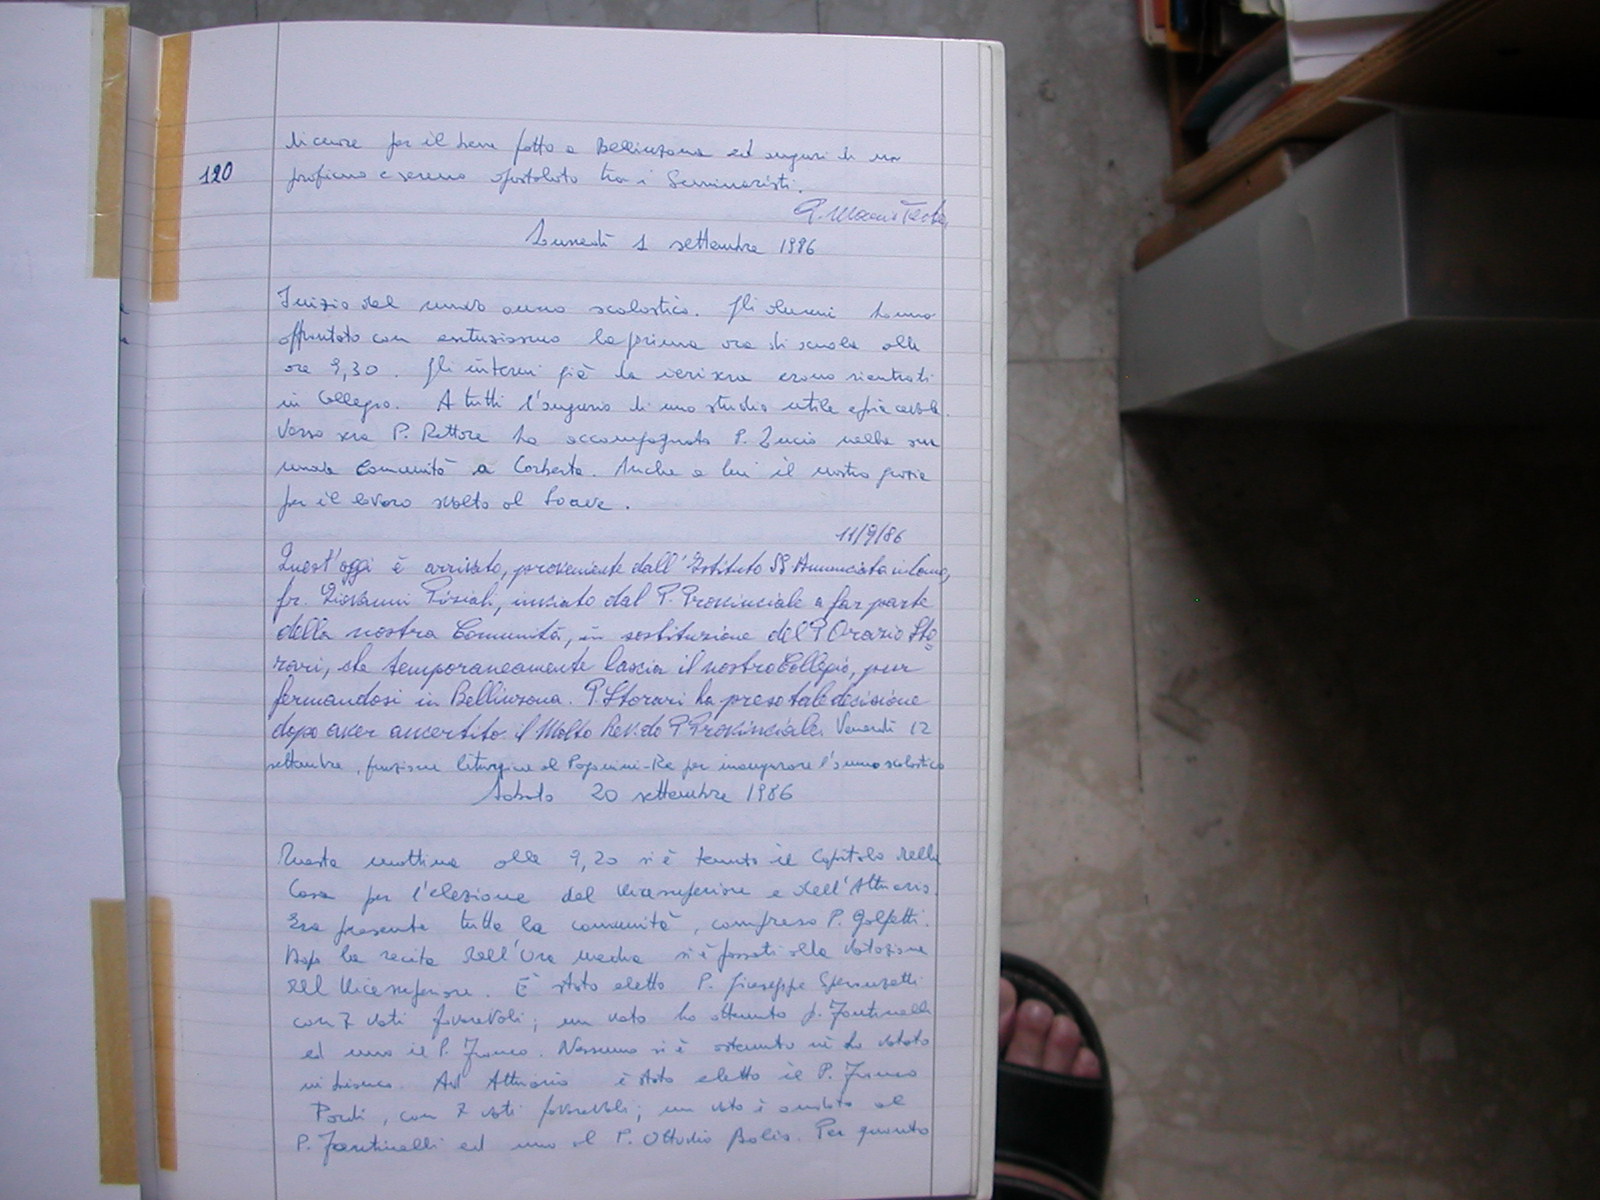 per il bene fatto a Bellinzona ed auguri di un
120
proficuo e sereno apostolato tra i Seminaristi.
P. Mario Testa
Lunedì 1 settembre 1986
Inizio del nuovo anno scolastico. Gli alunni hanno
affrontato con entusiasmo la prima ora di scuola alle
ore 9,30. Gli interni già la ieri sera erano rientrati
in Collegio. A tutti l'augurio di uno studio utile e piacevole.
Verso sera P. Rettore ha accompagnato P. Lucio nella sua
nuova Comunità a Corbetta. Anche a lui il nostro grazie
per il lavoro svolto al Soave.
11/9/86
Quest'oggi è arrivato, proveniente dall'Istituto SS Annunciata in Como,
fr. Giovanni, inviato dal P. Provinciale a far parte
della nostra Comunità, in sostituzione del P Orazio Sto=
rari, che temporaneamente lascia il nostro Collegio, pur
fermandosi in Bellinzona. P. Storari ha preso tale decisione
dopo aver avvertito il Molto Rev.do P Provinciale. Venerdì 12
settembre, funzione liturgica al Papio per inaugurare l'anno scolastico
Sabato 20 settembre 1986
Questa mattina alle 9,20 si è tenuto il Capitolo della
Casa per l'elezione del Vicesuperiore e dell'Attuario.
Era presente tutta la comunità, compreso P. Golfetti.
Dopo la recita dell'Ora media si è passati alla votazione
del Vicesuperiore. È stato eletto P. Giuseppe Speranzetti
con 7 voti favorevoli; un voto ha ottenuto P. Fantinelli
ed uno il P. Franco. Nessuno si è astenuto nè ha votato
in bianco. Ad Attuario è stato eletto il P. Franco
con 7 voti favorevoli; un voto è andato al
P. Fantinelli ed uno al P. Ottavio Bolis. Per quanto